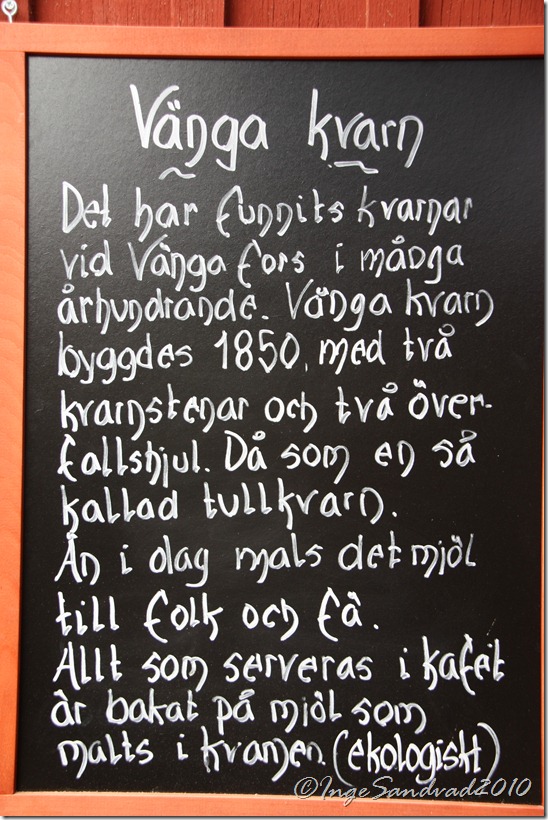 Vänga kvarn
Det har funnits kvarnar
vid Vänga fors i många
århundrande. Vänga kvarn
byggdes 1850, med två
kvarnstenar och två över-
fallshjul. Då som en så
kallad tullkvarn.
Än i dag mals det mjöl
till folk och fä.
Allt som serveras i kafét
är bakat på mjöl som
malts i kvarnen. (ekologiskt)
©IngeSandvad2010